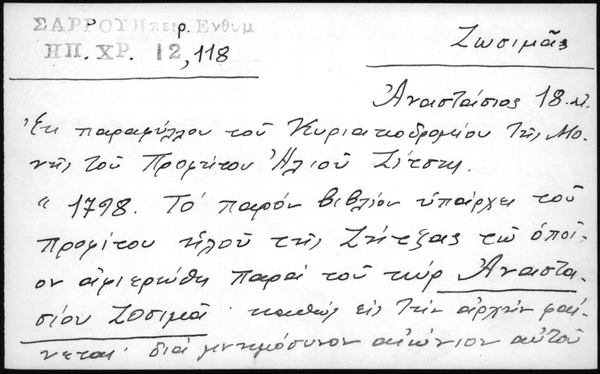 ΣΑΡΡΟΥ Ηπειρ. Ενθυμ
ΗΠ. ΧΡ. 12, 118
Ζωσιμᾶς
Ἀναστάσιος 18. αἰ.
Ἐκ παραφύλλου τοῦ Κυριακοδρομίου τῆς Μο-
νῆς τοῦ Προφήτου Ἠλιοῦ Ζίτσης.
" 1798. Τὸ παρὸν βιβλίον ὑπάρχει τοῦ
προφίτου ηλοῦ τῆς Ζήτζας τῶ ὁποῖ-
ον ἀφιερώθη παρὰ τοῦ κὺρ Ἀναστα-
σίου Ζοσιμᾶ καθὼς εἰς τὴν ἀρχὴν φαί-
νεται· διὰ μνημόσυνον αἰώνιον αὐτοῦ